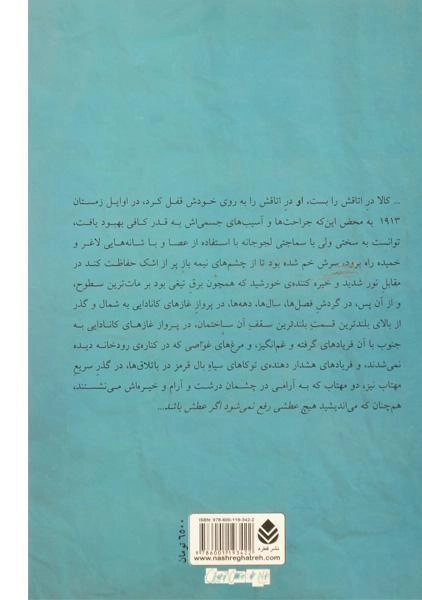 ... کالا درِ اتاقش را بست، او درِ اتاقش را به روی خودش قفل کرد، در اوایل زمستان
۱۹۱۳ به محض این‌که جراحت‌ها و آسیب‌های جسمی‌اش به قدر کافی بهبود یافت،
توانست به سختی ولی با سماجتی لجوجانه با استفاده از عصا و با شانه‌هایی لاغر و
خمیده راه برود، سرش خم شده بود تا از چشم‌های نیمه بازِ پر از اشک حفاظت کند در
مقابل نور شدید و خیره کننده‌ی خورشید که همچون برقِ تیغی بود بر مات‌ترین سطوح،
و از آن پس، در گردشِ فصل‌ها، سال‌ها، دهه‌ها، در پروازِ غازهای کانادایی به شمال و گذر
از بالای بلندترین قسمتِ بلندترین سقفِ آن ساختمان، در پرواز غازهای کانادایی به
جنوب با آن فریادهای گرفته و غم‌انگیز، و مرغ‌های غوّاصی که در کناره‌ی رودخانه دیده
نمی‌شدند، و فریادهای هشدار دهنده‌ی توکاهای سیاهِ بال قرمز در باتلاق‌ها، در گذرِ سریعِ
مهتاب نیز، دو مهتاب که به آرامی در چشمان درشت و آرام و خیره‌اش می‌نشستند،
هم‌چنان که می‌اندیشید هیچ عطشی رفع نمی‌شود اگر عطش باشد...
ISBN: 978-600-119-342-2
9786001193422
نشر قطره
www.nashreghatreh.com
۶۵۰۰ تومان